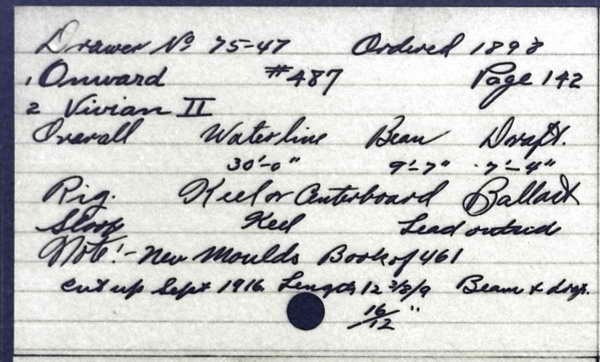 Drawer No 75-47 Ordered 1898
1 Onward #487 Page 142
2 Vivian II
Overall Waterline Beam Draft.
30'-0" 9'-7" 7'-4"
Rig. Keel or Centerboard Ballast
Sloop Keel Lead outside
Note:- New Moulds Book of 461
cut up Sept 1916 Length 12 Beam +
16/12 "